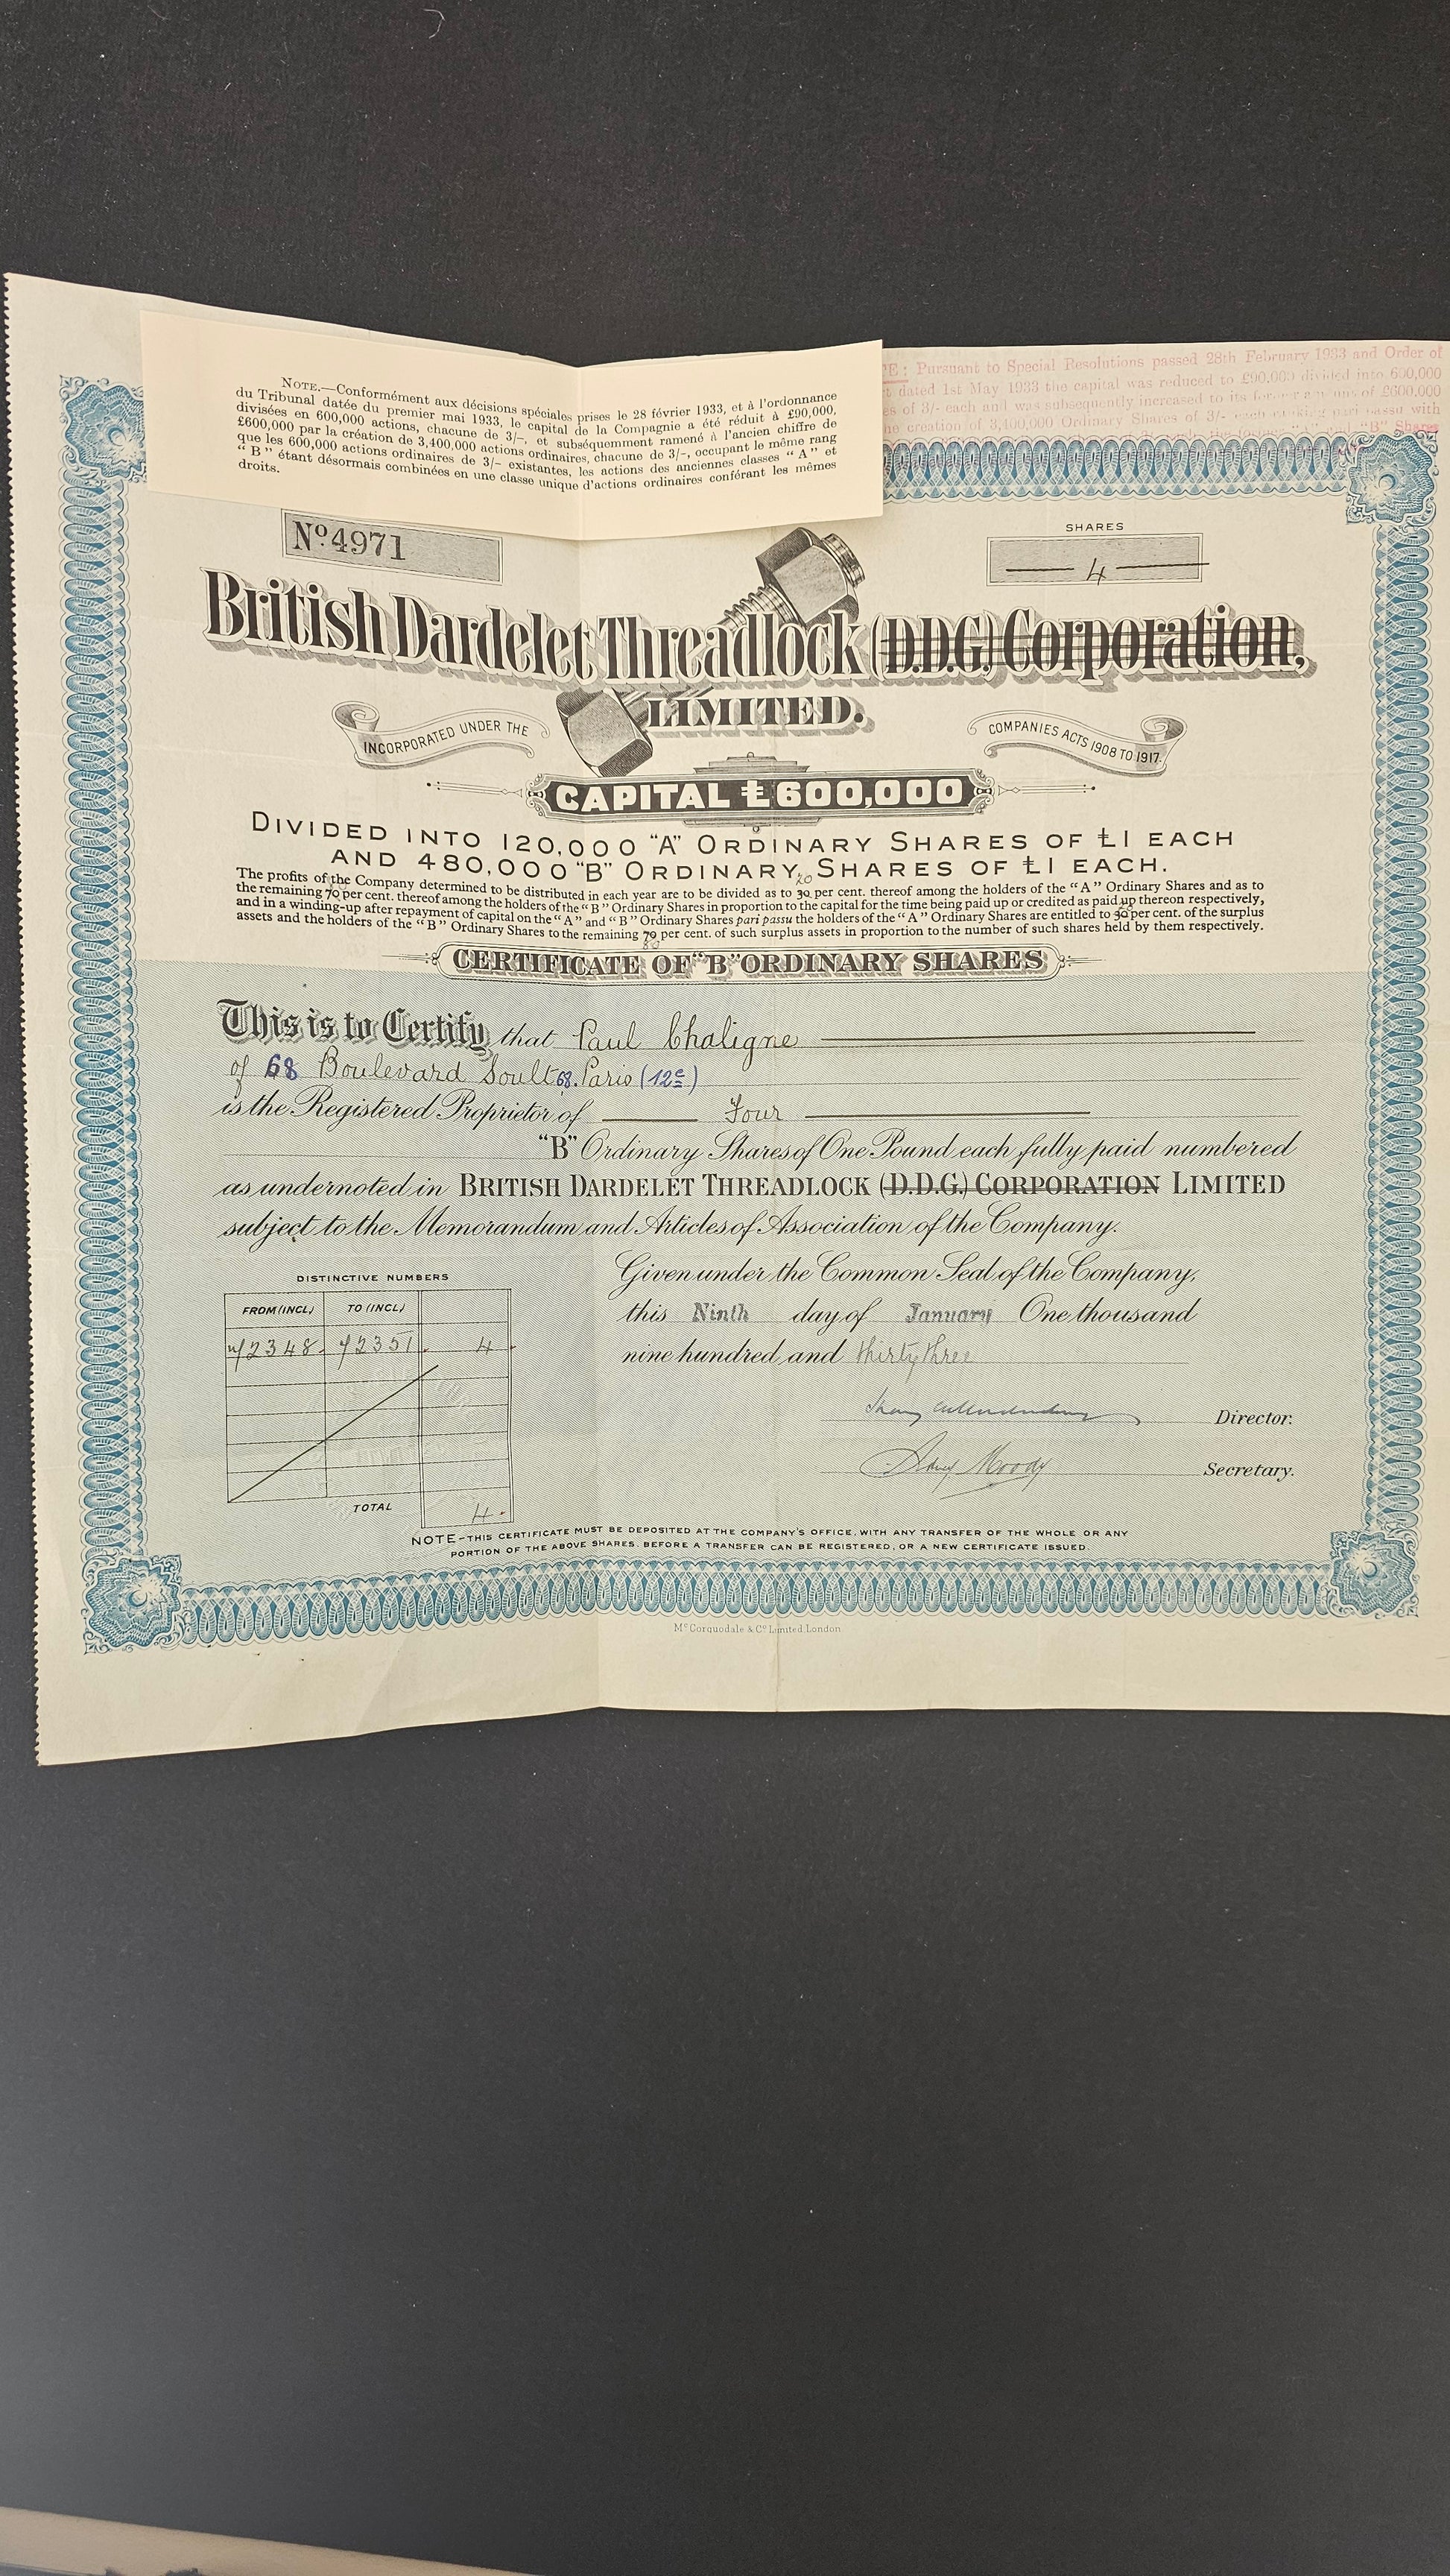 NOTE.—Conformément aux décisions spéciales prises le 28 février 1933, et à l'ordonnance
du Tribunal datée du premier mai 1933, le capital de la Compagnie a été réduit à £90,000,
divisées en 600,000 actions, chacune de 3/–, et subséquemment ramené à l'ancien chiffre de
£600,000 par la création de 3,400,000 actions ordinaires, chacune de 3/–, occupant le même rang
que les 600,000 actions ordinaires de 3/– existantes, les actions des anciennes classes "A" et
"B" étant désormais combinées en une classe unique d'actions ordinaires conférant les mêmes
droits.
: Pursuant to Special Resolutions passed 28th February 1933 and Order of
dated 1st May 1933 the capital was reduced to £90,000 divided into 600,000
of 3/- each and was subsequently increased to its former of £600,000
creation of 3,400,000 Ordinary Shares of 3/- each ranking pari passu with
"B" Shares
Nº 4971
SHARES
4
British Dardelet Threadlock (D.D.G.) Corporation,
LIMITED.
INCORPORATED UNDER THE
COMPANIES ACTS 1908 TO 1917.
CAPITAL £600,000
DIVIDED INTO 120,000 "A" ORDINARY SHARES OF £1 EACH
AND 480,000 "B" ORDINARY SHARES OF £1 EACH.
20
The profits of the Company determined to be distributed in each year are to be divided as to 30 per cent. thereof among the holders of the "A" Ordinary Shares and as to
the remaining 70 per cent. thereof among the holders of the "B" Ordinary Shares in proportion to the capital for the time being paid up or credited as paid up thereon respectively,
and in a winding-up after repayment of capital on the "A" and "B" Ordinary Shares pari passu the holders of the "A" Ordinary Shares are entitled to 30 per cent. of the surplus
assets and the holders of the "B" Ordinary Shares to the remaining 70 per cent. of such surplus assets in proportion to the number of such shares held by them respectively.
80
CERTIFICATE OF "B" ORDINARY SHARES
This is to Certify that Paul Chaligne
of 68 Boulevard Soult 68. Paris (12e)
is the Registered Proprietor of Four
"B" Ordinary Shares of One Pound each fully paid numbered
as undernoted in BRITISH DARDELET THREADLOCK (D.D.G.) CORPORATION LIMITED
subject to the Memorandum and Articles of Association of the Company.
Given under the Common Seal of the Company,
this Ninth day of January One thousand
nine hundred and thirty three
DISTINCTIVE NUMBERS
FROM (INCL) TO (INCL)
72348 72351 4
TOTAL 4
Director.
Moody Secretary.
NOTE—THIS CERTIFICATE MUST BE DEPOSITED AT THE COMPANY'S OFFICE, WITH ANY TRANSFER OF THE WHOLE OR ANY
PORTION OF THE ABOVE SHARES. BEFORE A TRANSFER CAN BE REGISTERED, OR A NEW CERTIFICATE ISSUED.
McCorquodale & Co Limited London